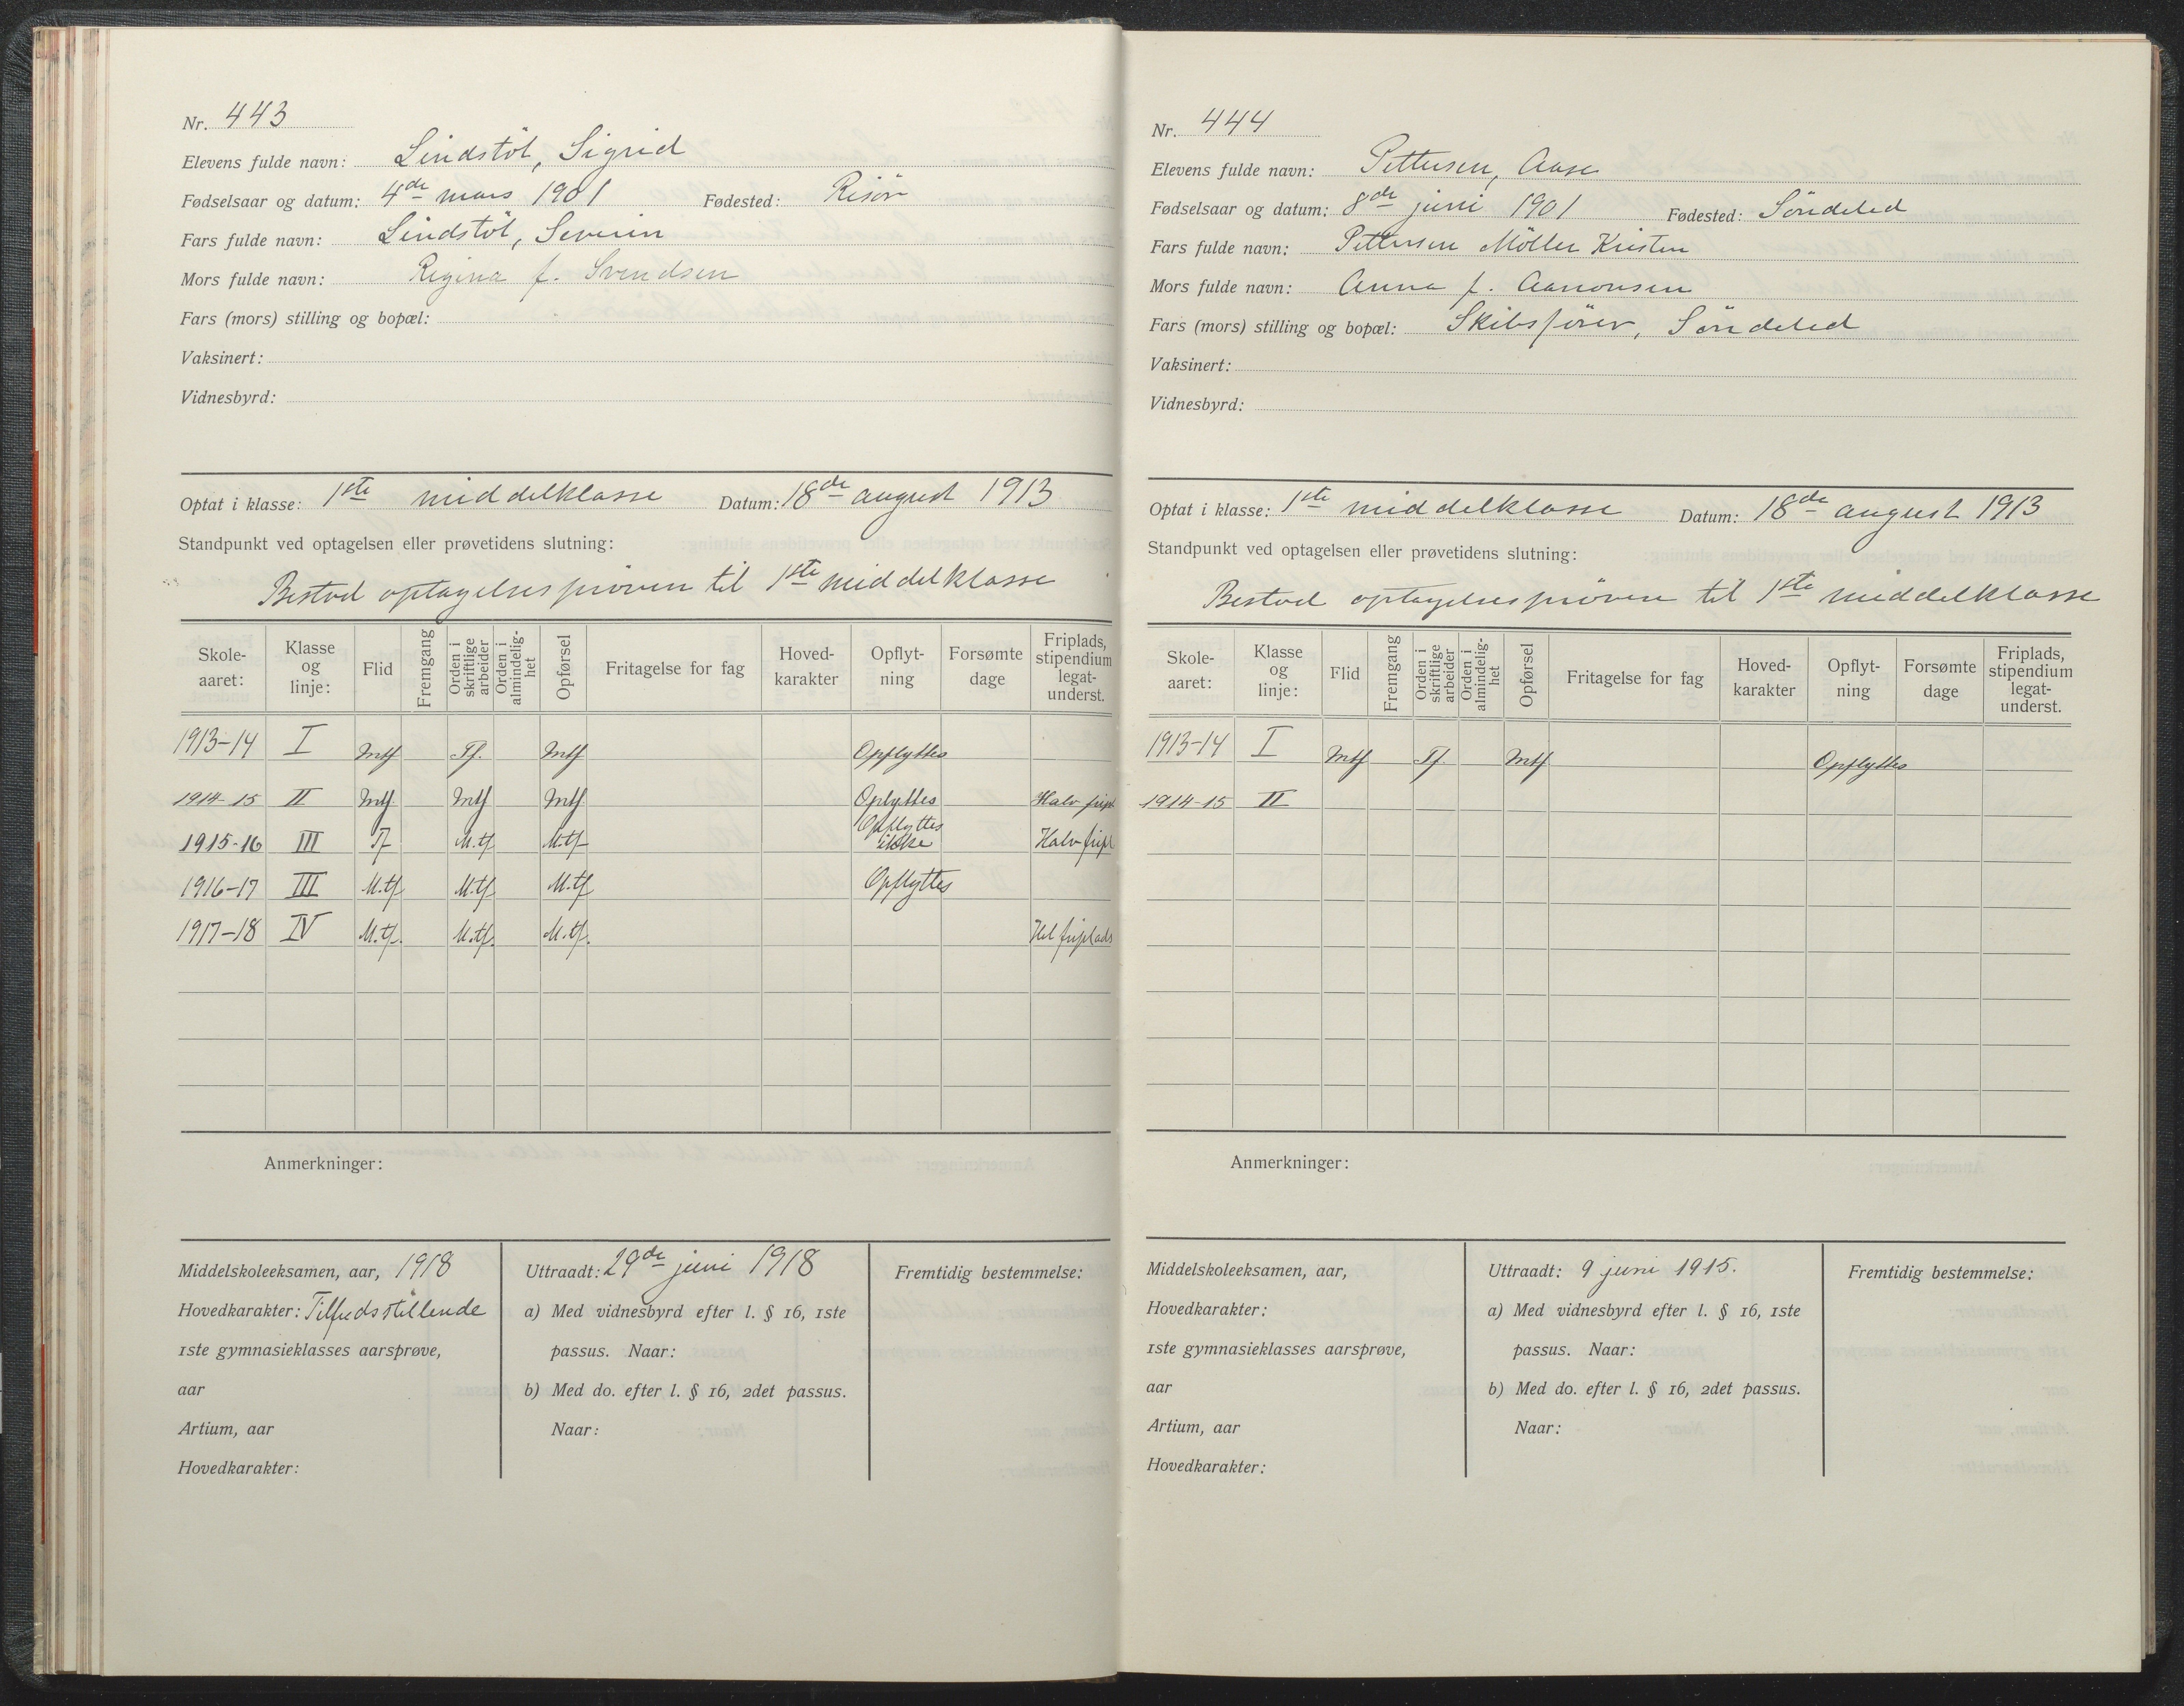 Nr. 443
Elevens fulde navn: Lindstöl, Sigrid
Fødselsaar og datum: 4de mars 1901 Fødested: Risör
Fars fulde navn: Lindstöl, Severin
Mors fulde navn: Regina f. Svendsen
Fars (mors) stilling og bopæl:
Vaksinert:
Vidnesbyrd:
Optat i klasse: 1ste middelklasse Datum: 18de august 1913
Standpunkt ved optagelsen eller prøvetidens slutning:
Bestod optagelsespröven til 1ste middelklasse
Skole-aaret: Klasse og linje: Flid Fremgang Orden i skriftlige arbeider Orden i almindelig-het Opførsel Fritagelse for fag Hoved-karakter Opflyt-ning Forsømte dage Friplads, stipendium legat-underst.
1913-14 I Mtf Tf. Mtf Opflyttes
1914-15 II Mtf Mtf Mtf Oplyttes Halv fripl.
1915-16 III Tf M.tf M.tf Opflyttes ikke Halv fripl
1916-17 III M.tf M.tf M.tf Opflyttes
1917-18 IV M.tf. M.tf. M.tf. Hel friplads
Anmerkninger:
Middelskoleeksamen, aar, 1918
Hovedkarakter: Tilfredsstillende
1ste gymnasieklasses aarsprøve,
aar
Artium, aar
Hovedkarakter:
Uttraadt: 29de juni 1918
a) Med vidnesbyrd efter l. § 16, 1ste
passus. Naar:
b) Med do. efter l. § 16, 2det passus.
Naar:
Fremtidig bestemmelse:
Nr. 444
Elevens fulde navn: Pettersen, Aase
Fødselsaar og datum: 8de juni 1901 Fødested: Söndeled
Fars fulde navn: Pettersen Möller Kristen
Mors fulde navn: Anna f. Aanonsen
Fars (mors) stilling og bopæl: Skibsförer, Söndeled
Vaksinert:
Vidnesbyrd:
Optat i klasse: 1ste middelklasse Datum: 18de august 1913
Standpunkt ved optagelsen eller prøvetidens slutning:
Bestod optagelsespröven til 1ste middelklasse
Skole-aaret: Klasse og linje: Flid Fremgang Orden i skriftlige arbeider Orden i almindelig-het Opførsel Fritagelse for fag Hoved-karakter Opflyt-ning Forsømte dage Friplads, stipendium legat-underst.
1913-14 I Mtf Tf. Mtf Opflyttes
1914-15 II
Anmerkninger:
Middelskoleeksamen, aar,
Hovedkarakter:
1ste gymnasieklasses aarsprøve,
aar
Artium, aar
Hovedkarakter:
Uttraadt: 9 juni 1915.
a) Med vidnesbyrd efter l. § 16, 1ste
passus. Naar:
b) Med do. efter l. § 16, 2det passus.
Naar:
Fremtidig bestemmelse: